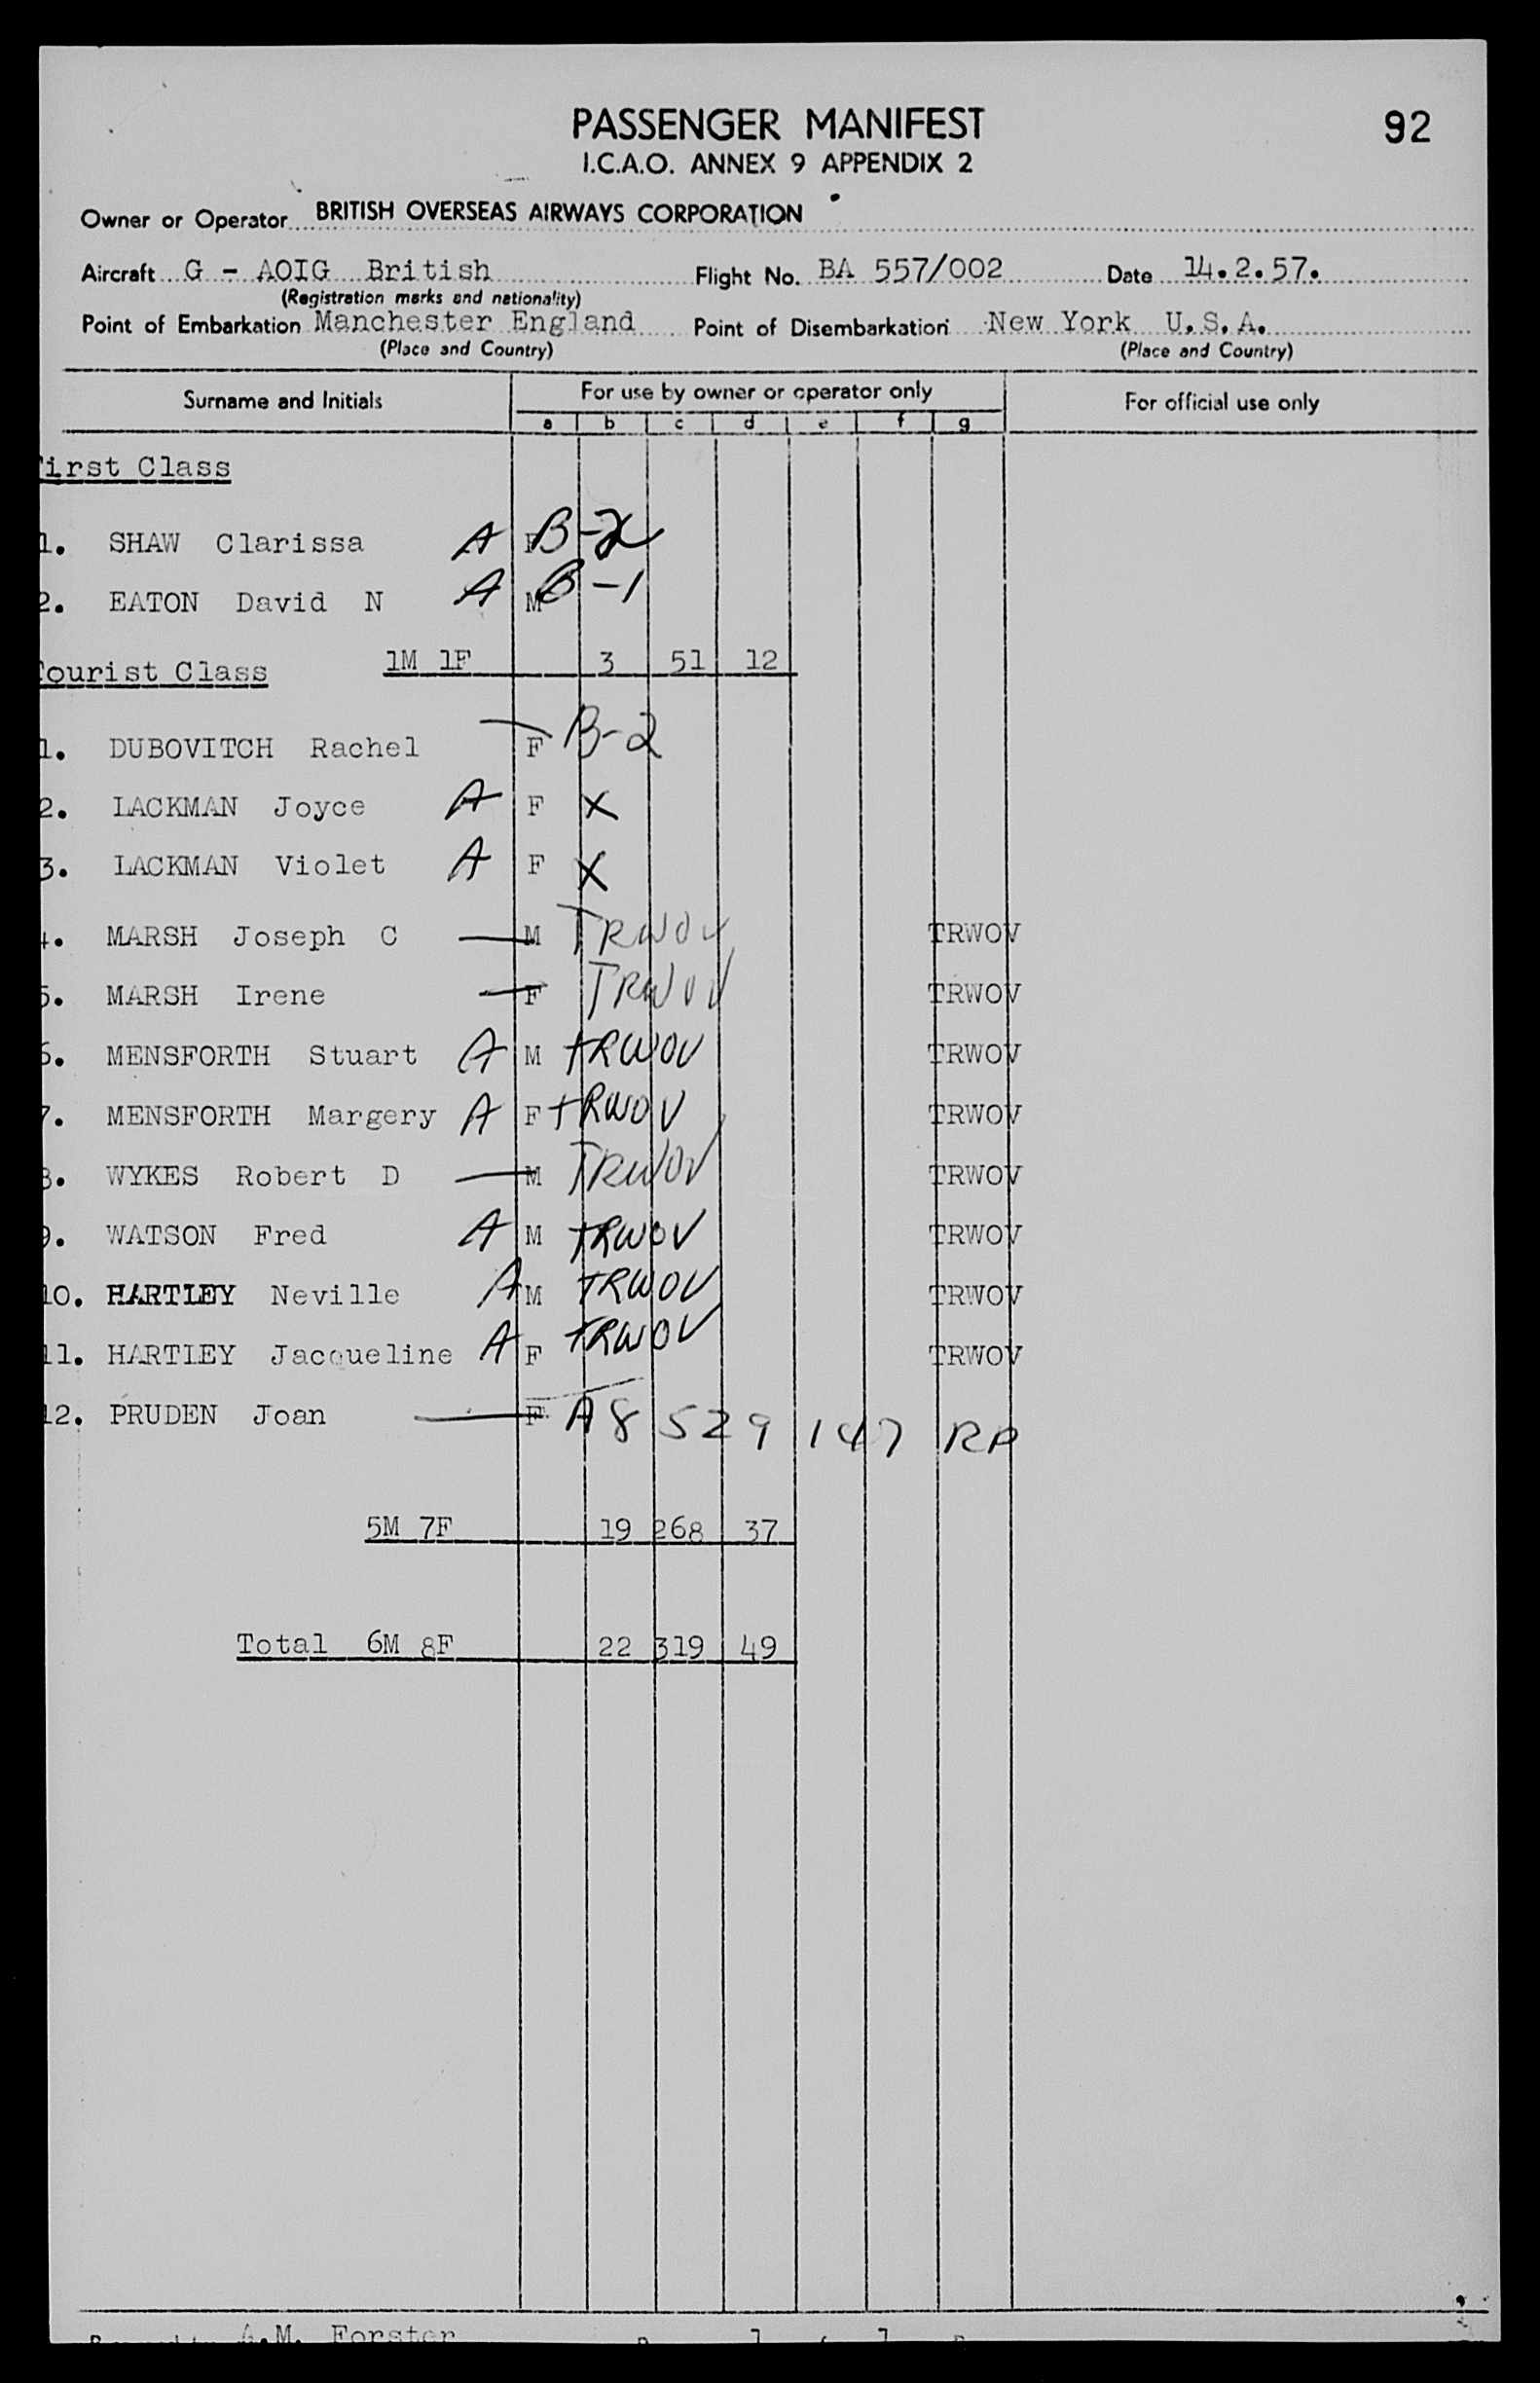 PASSENGER MANIFEST 92
I.C.A.O. ANNEX 9 APPENDIX 2
Owner or Operator BRITISH OVERSEAS AIRWAYS CORPORATION
Aircraft G - AOIG British Flight No. BA 557/002 Date 14.2.57.
(Registration marks and nationality)
Point of Embarkation Manchester England Point of Disembarkation New York U.S.A.
(Place and Country) (Place and Country)
Surname and Initials For use by owner or operator only For official use only
a b c d e f g
irst Class
1. SHAW Clarissa A F B-2
2. EATON David N A M B-1
1M 1F 3 51 12
ourist Class
1. DUBOVITCH Rachel — F B-2
2. LACKMAN Joyce A F X
3. LACKMAN Violet A F X
4. MARSH Joseph C — M TRWOV TRWOV
5. MARSH Irene — F TRWOV TRWOV
6. MENSFORTH Stuart A M TRWOV TRWOV
7. MENSFORTH Margery A F TRWOV TRWOV
8. WYKES Robert D — M TRWOV TRWOV
9. WATSON Fred A M TRWOV TRWOV
10. HARTLEY Neville A M TRWOV TRWOV
11. HARTLEY Jacqueline A F TRWOV TRWOV
12. PRUDEN Joan — F A8 529 147 RP
5M 7F 19 268 37
Total 6M 8F 22 319 49
A.M. Forster